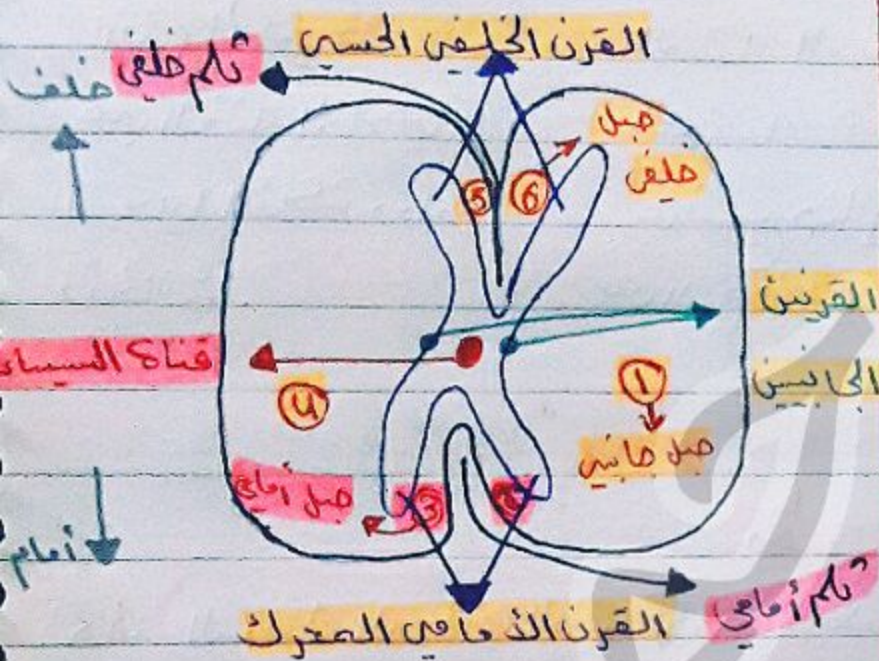 القرن الخلفي الحسي
ثلم خلفي
خلف
حبل
خلفي
5
6
القرنين
الجانبيين
قناة السيساء
1
حبل جانبي
حبل أمامي
3
أمام
القرن الأمامي المحرك
ثلم أمامي